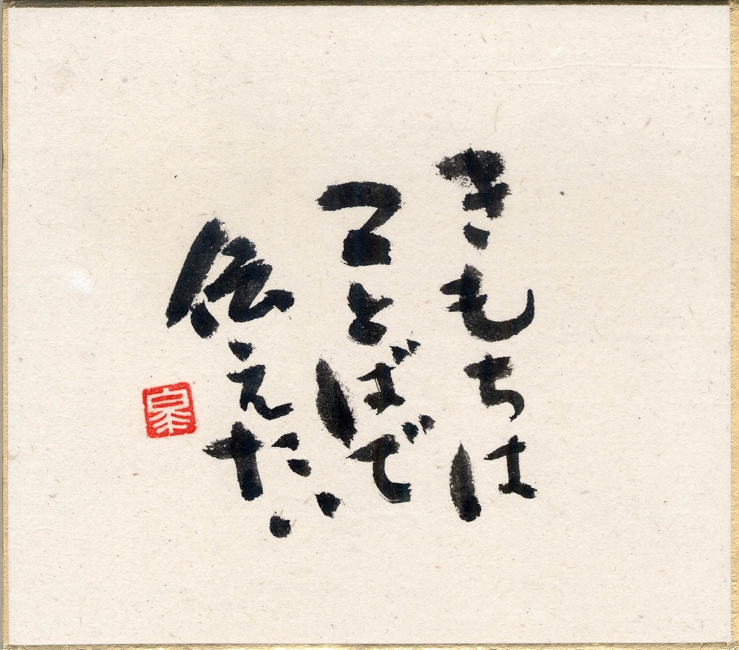 きもちは
ことばで
伝えたい
泉